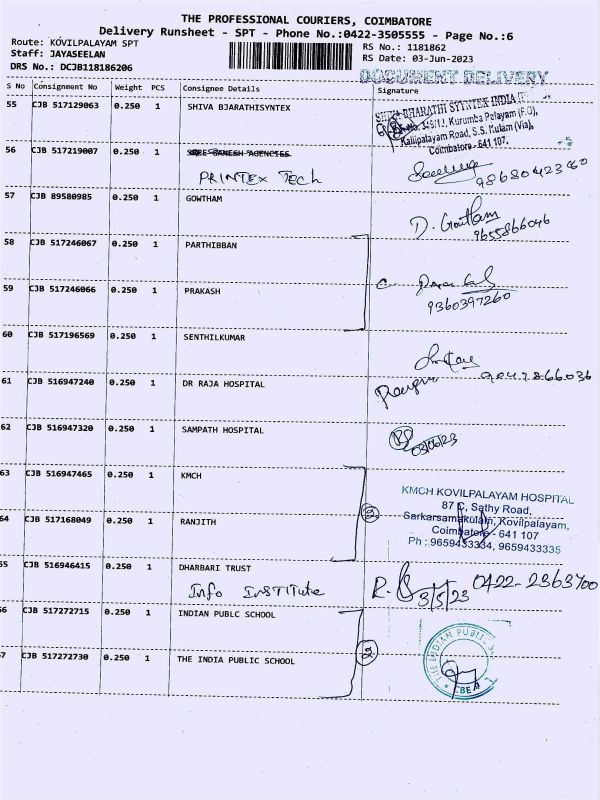 THE PROFESSIONAL COURIERS, COIMBATORE
Delivery Runsheet - SPT - Phone No.:0422-3505555 - Page No.:6
Route: KOVILPALAYAM SPT
Staff: JAYASEELAN
DRS No.: DCJB118186206
RS No.: 1181862
RS Date: 03-Jun-2023
DOCUMENT DELIVERY
S No Consignment No Weight PCS Consignee Details Signature
55 CJB 517129063 0.250 1 SHIVA BJARATHISYNTEX
BHARATHI SYNTEX INDIA
Kurumba Palayam (P.O),
Kalipalayam Road, S.S. Kulam (Via),
Coimbatore - 641 107.
56 CJB 517219007 0.250 1 SREE GANESH AGENCIES
PRINTEX Tech
57 CJB 89580985 0.250 1 GOWTHAM
D. Goutham
9655866046
58 CJB 517246067 0.250 1 PARTHIBBAN
59 CJB 517246066 0.250 1 PRAKASH
9360397260
60 CJB 517196569 0.250 1 SENTHILKUMAR
61 CJB 516947240 0.250 1 DR RAJA HOSPITAL
62 CJB 516947320 0.250 1 SAMPATH HOSPITAL
03/06/23
63 CJB 516947465 0.250 1 KMCH
KMCH KOVILPALAYAM HOSPITAL
87 C, Sathy Road,
Sarkarsamakulam, Kovilpalayam,
Coimbatore - 641 107
Ph : 9659433334, 9659433335
64 CJB 517168049 0.250 1 RANJITH
65 CJB 516946415 0.250 1 DHARBARI TRUST
Info INSTITute
3/5/23 0422-2363700
66 CJB 517272715 0.250 1 INDIAN PUBLC SCHOOL
67 CJB 517272730 0.250 1 THE INDIA PUBLIC SCHOOL
THE INDIAN PUBLIC
CBE